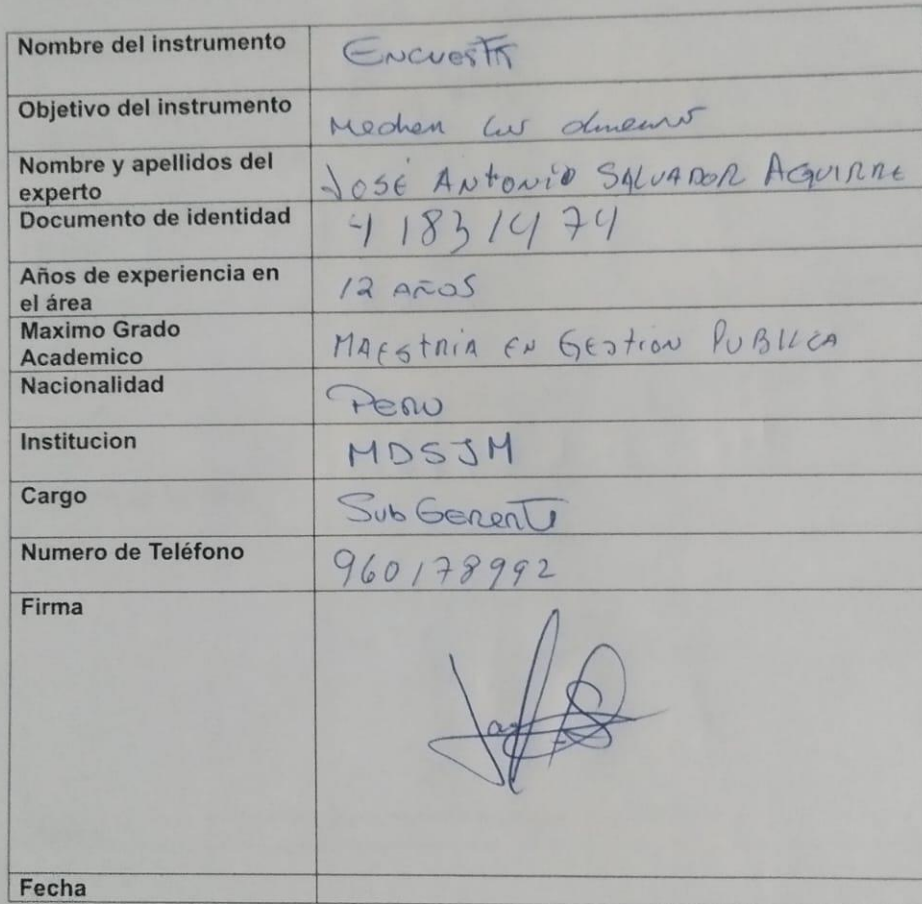 Nombre del instrumento
Encuesta
Objetivo del instrumento
Nombre y apellidos del
experto
José Antonio Salvador Aguirre
Documento de identidad
41831474
Años de experiencia en
el área
12 años
Maximo Grado
Academico
Maestria en Gestion Publica
Nacionalidad
Peru
Institucion
MDSJM
Cargo
Sub Gerente
Numero de Teléfono
960178992
Firma
Fecha